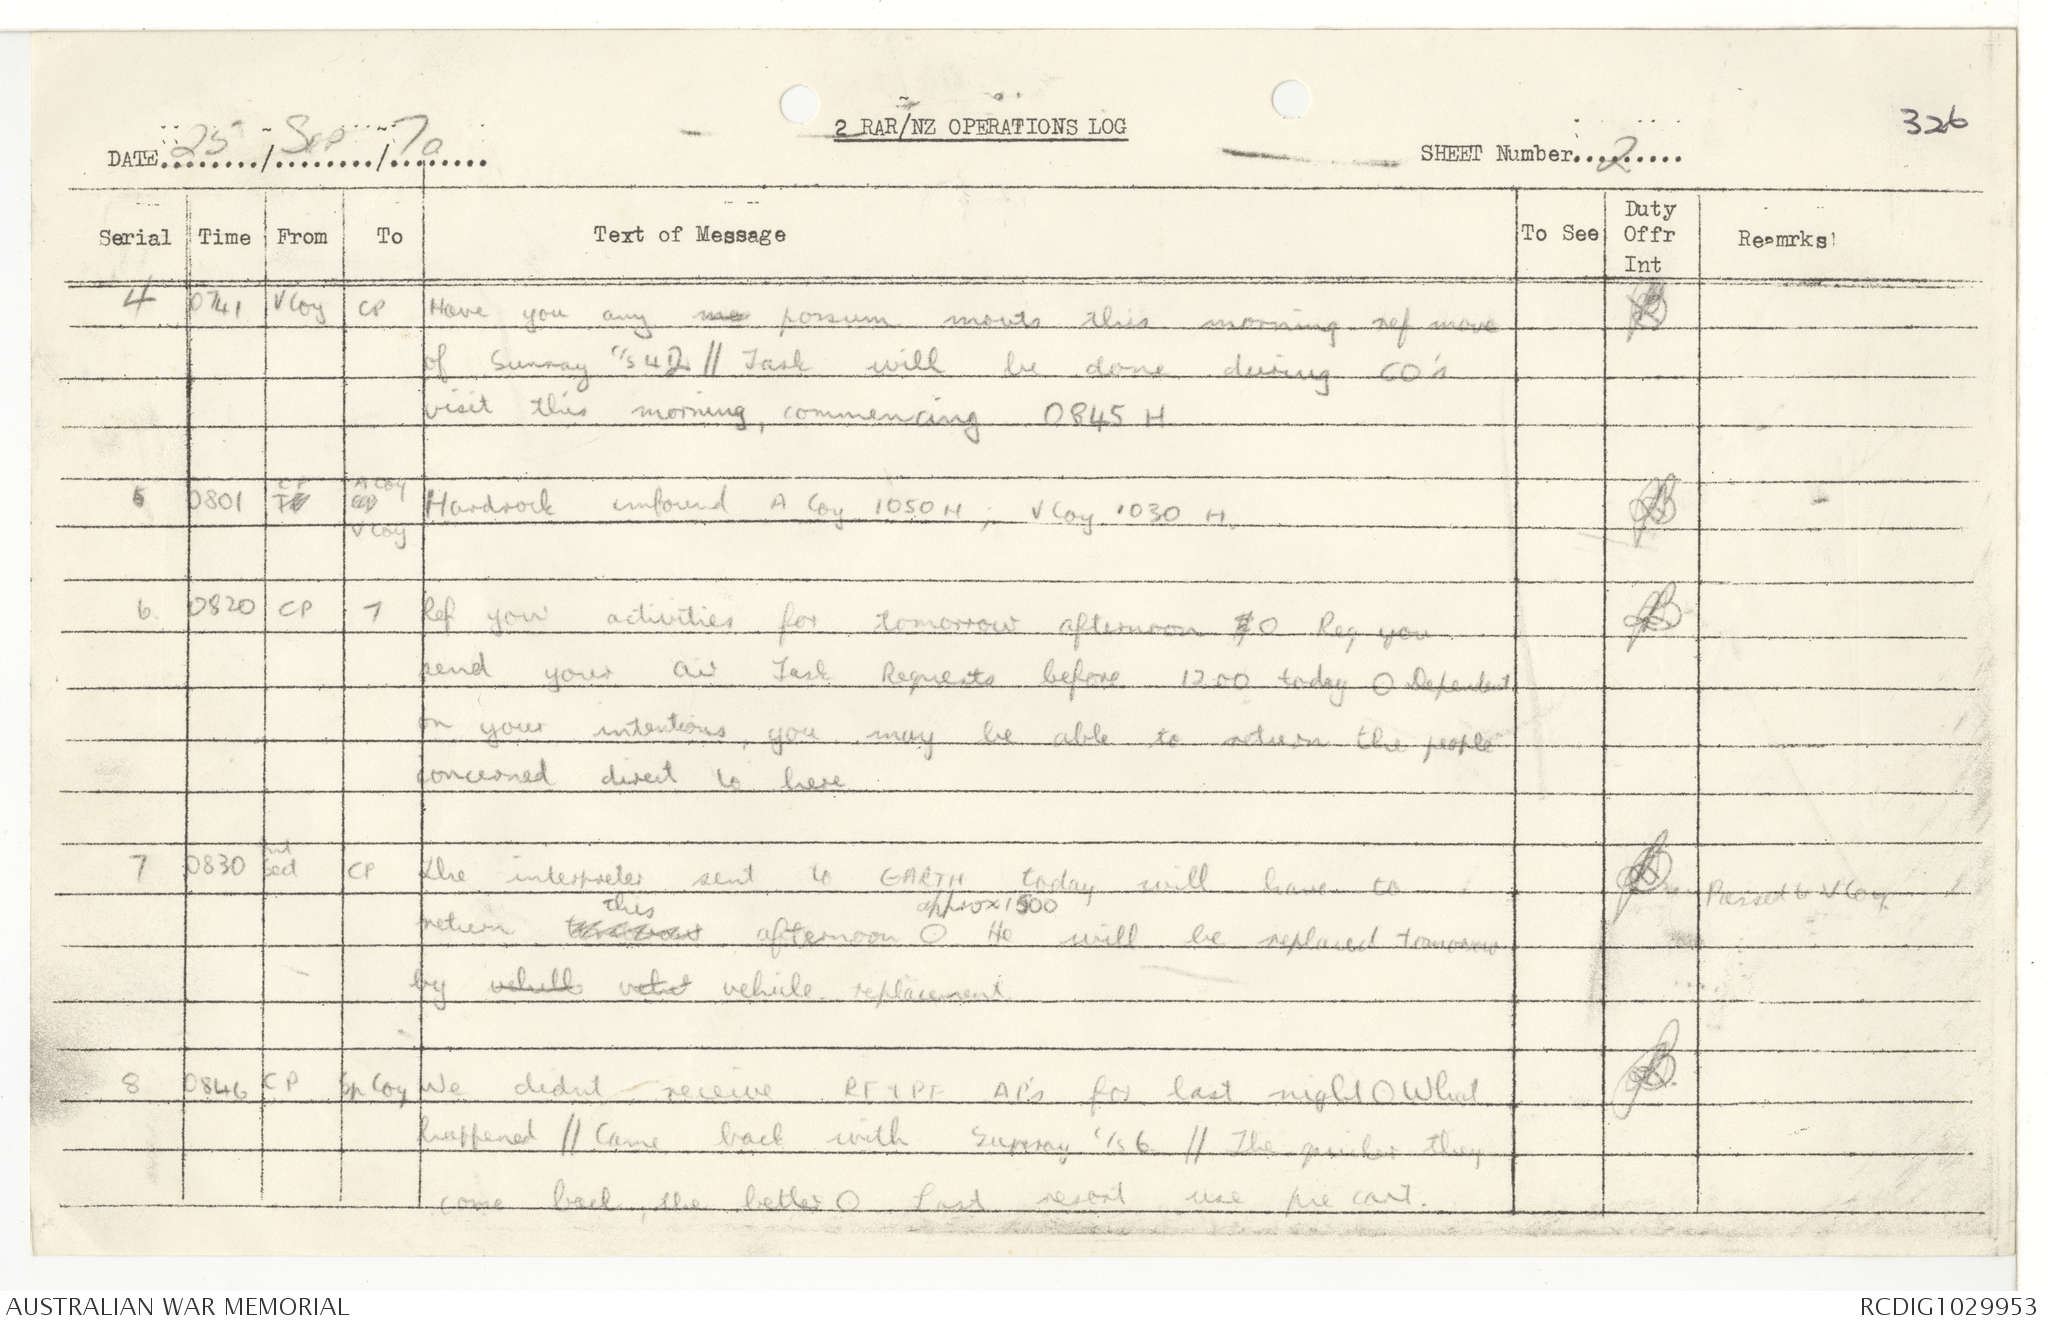 326
2 RAR/NZ OPERATIONS LOG
DATE 25 / Sep / 70
SHEET Number 2
Serial Time From To Text of Message To See Duty Offr Int Reamrks
4 0741 V Coy CP Have you any possum mouts this morning ref move
of Sunray C/S 42 // Task will be done during CO's
visit this morning, commencing 0845 H
5 0801 CP A Coy V Coy Hardrock inbound A Coy 1050 H; V Coy 1030 H.
6 0820 CP 7 Ref your activities for tomorrow afternoon O Req you
send your Air Task Requests before 1200 today O Dependent
on your intentions, you may be able to return the people
concerned direct to here
7 0830 Int Sect CP The interpreter sent to GARTH today will have to Passed to V Coy
return this afternoon approx 1500 O He will be replaced tomorrow
by vehicle replacement
8 0846 CP Sp Coy We didnt receive RF & PF AP's for last night O What
happened // Came back with Sunray C/S 6 // The quicker they
come back, the better O Last resort use
AUSTRALIAN WAR MEMORIAL
RCDIG1029953